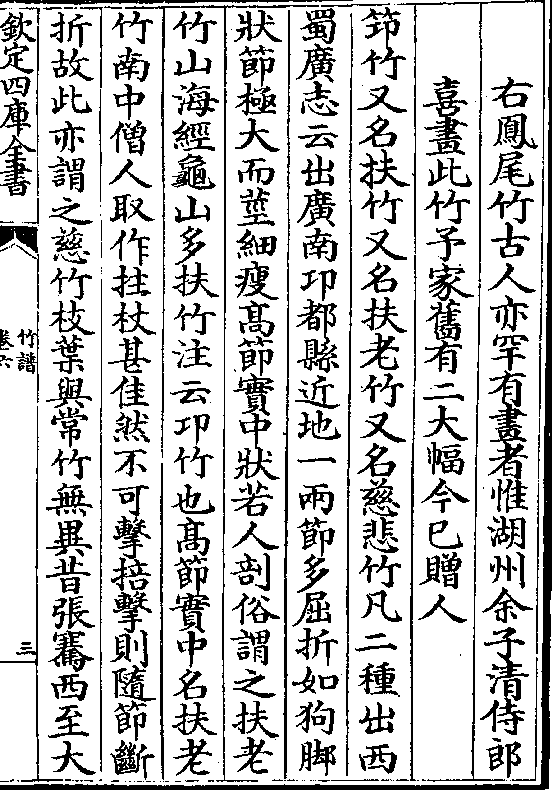 右鳳尾竹古人亦罕有畫者惟湖州余子清侍郎
喜畫此竹予家舊有二大幅今已贈人
笻竹又名扶竹又名扶老竹又名慈悲竹凡二種出西
蜀廣志云出廣南卭都縣近地一兩節多屈折如狗脚
狀節極大而莖細瘦髙節實中狀若人剖俗謂之扶老
竹山海經龜山多扶竹注云卭竹也髙節實中名扶老
竹南中僧人取作拄杖甚佳然不可擊掊擊則隨節斷
折故此亦謂之慈竹枝葉與常竹無異昔張騫西至大
欽定四庫全書
竹譜
卷六
三